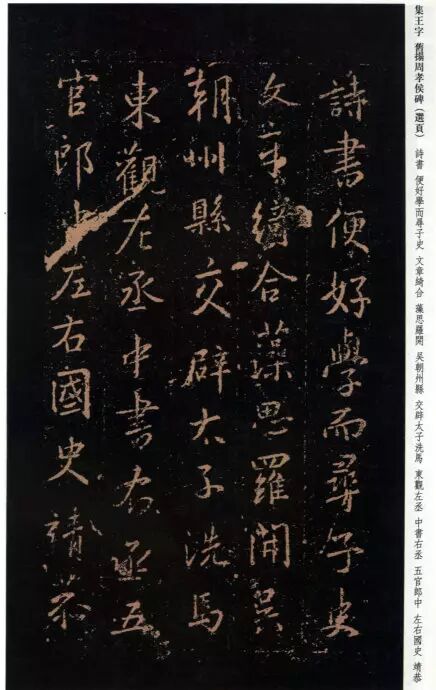 集王字 舊搨周孝侯碑（選頁） 詩書 便好學而尋子史 文章綺合 藻思羅開 吳朝州縣 交辟太子洗馬 東觀左丞 中書右丞 五官郎中 左右國史 靖恭
詩書便好學而尋子史
文章綺合藻思羅開吳
朝州縣交辟太子洗馬
東觀左丞中書右丞五
官郎中左右國史靖恭